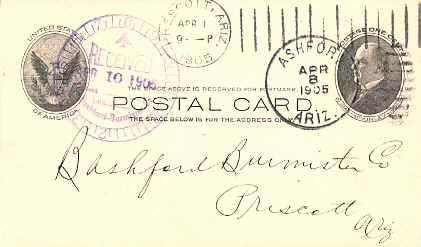 UNITED STATES
OF AMERICA
RECEIVED
APR 10 1905
PRESCOTT, ARIZ.
APR 1
9- -P
1905
ASHFORK
APR
8
1905
ARIZ.
POSTAGE ONE CENT
THE SPACE ABOVE IS RESERVED FOR POSTMARK.
POSTAL CARD.
THE SPACE BELOW IS FOR THE ADDRESS ONLY
Bashford Burmister Co
Prescott
Ariz